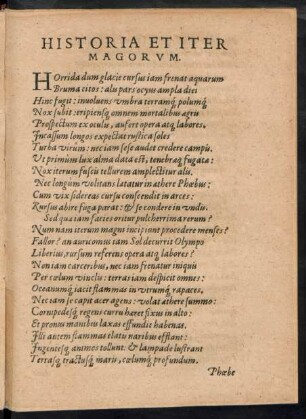 HISTORIA ET ITER
MAGORVM.
HOrrida dum glacie cursus iam frenat aquarum
Bruma citos: alu pars ocyus ampla diei
Hinc fugit: inuoluens vmbra terramq́ polumq́
Nox subit: eripiensq́ omnem mortalibus agris
Prospectum ex oculis, aufert opera atq labores.
Incassum longos expectat rustica soles
Turba virûm: nec iam sese audet credere campis.
Vt primùm lux alma data est, tenebraq́ fugata:
Nox iterum fuscis tellurem amplectitur alis.
Nec longùm volitans latatur in athere Phœbus:
Cum vix sidereas cursu conscendit in arces:
Rursus abire fuga parat: & se condere in vndis.
Sed qua iam facies oritur pulcherrima rerum?
Num nam iterum magni incipiunt procedere menses?
Fallor? an auricomus iam Sol decurrit Olympo
Liberius, rursum referens opera atq labores?
Non iam carceribus, nec iam frenatur iniqui
Per cœlum vinclis: terras iam dispicit omnes:
Oceanumq́ iacit flammas in vtrumq́, rapaces.
Nec iam se capit acer agens: volat athere summo:
Cornipedesq́, regens curru haeret fixus in alto:
Et pronus manibus laxas effundit habenas.
Illi autem flammas elatis naribus efflant:
Ingentesq́ animos tollunt: & lampade lustrant
Terrasq́ tractusq́ maris, cœlumq́ profundum.
Phœbe